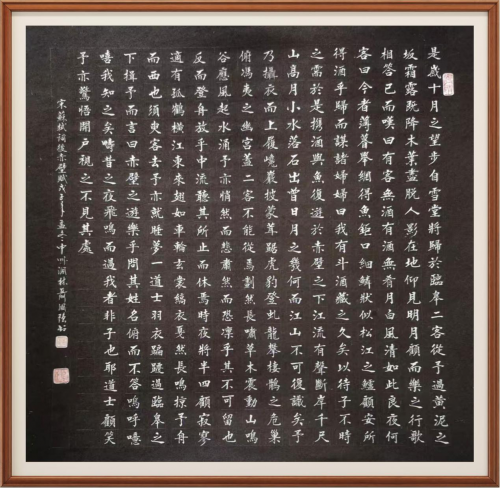 是歲十月之望步自雪堂將歸於臨皋二客從予過黃泥之
坂霜露既降木葉盡脫人影在地仰見明月顧而樂之行歌
相答已而嘆曰有客無酒有酒無肴月白風清如此良夜何
客曰今者薄暮舉網得魚鉅口細鱗狀似松江之鱸顧安所
得酒乎歸而謀諸婦婦曰我有斗酒藏之久矣以待子不時
之需於是携酒與魚復遊於赤壁之下江流有聲斷岸千尺
山高月小水落石出曾日月之幾何而江山不可復識矣予
乃攝衣而上履巉巖披蒙茸踞虎豹登虬龍攀棲鶻之危巢
俯馮夷之幽宮蓋二客不能從焉劃然長嘯草木震動山鳴
谷應風起水涌予亦悄然而悲肅然而恐凜乎其不可留也
反而登舟放乎中流聽其所止而休焉時夜將半四顧寂寥
適有孤鶴橫江東來翅如車輪玄裳縞衣戛然長鳴掠予舟
而西也須臾客去予亦就睡夢一道士羽衣蹁躚過臨皋之
下揖予而言曰赤壁之遊樂乎問其姓名俯而不答嗚呼噫
嘻我知之矣疇昔之夜飛鳴而過我者非子也耶道士顧笑
予亦驚悟開戶視之不見其處
宋蘇軾後赤壁賦戊 中州